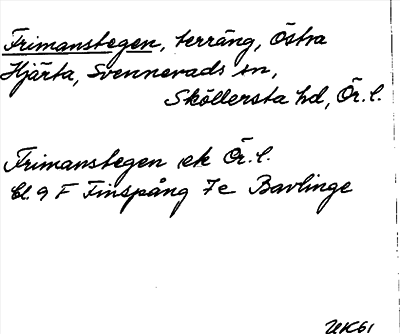 Frimanstegen, terräng, Östra
Hjärta, Svennevads sn,
Sköllersta hd, Ör. l.
Frimanstegen ek Ör. l.
Bl. 9 F Finspång 7e Bavlinge
UK61